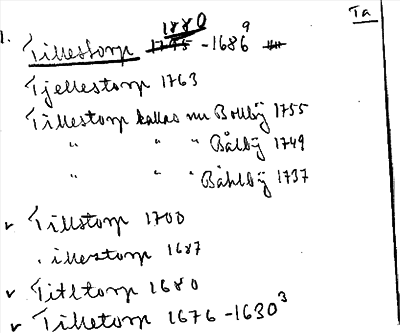 Ta
1880
1. Tillestorp 1795 - 1689
Tjellestorp 1763
Tillestorp kallas nu Bollbÿ 1755
" " " Bålbÿ 1749
" " " Båhlbÿ 1737
v Tillstorp 1700
. illestorp 1687
v Titltorp 1680
v Tilletorp 1676 - 1630³